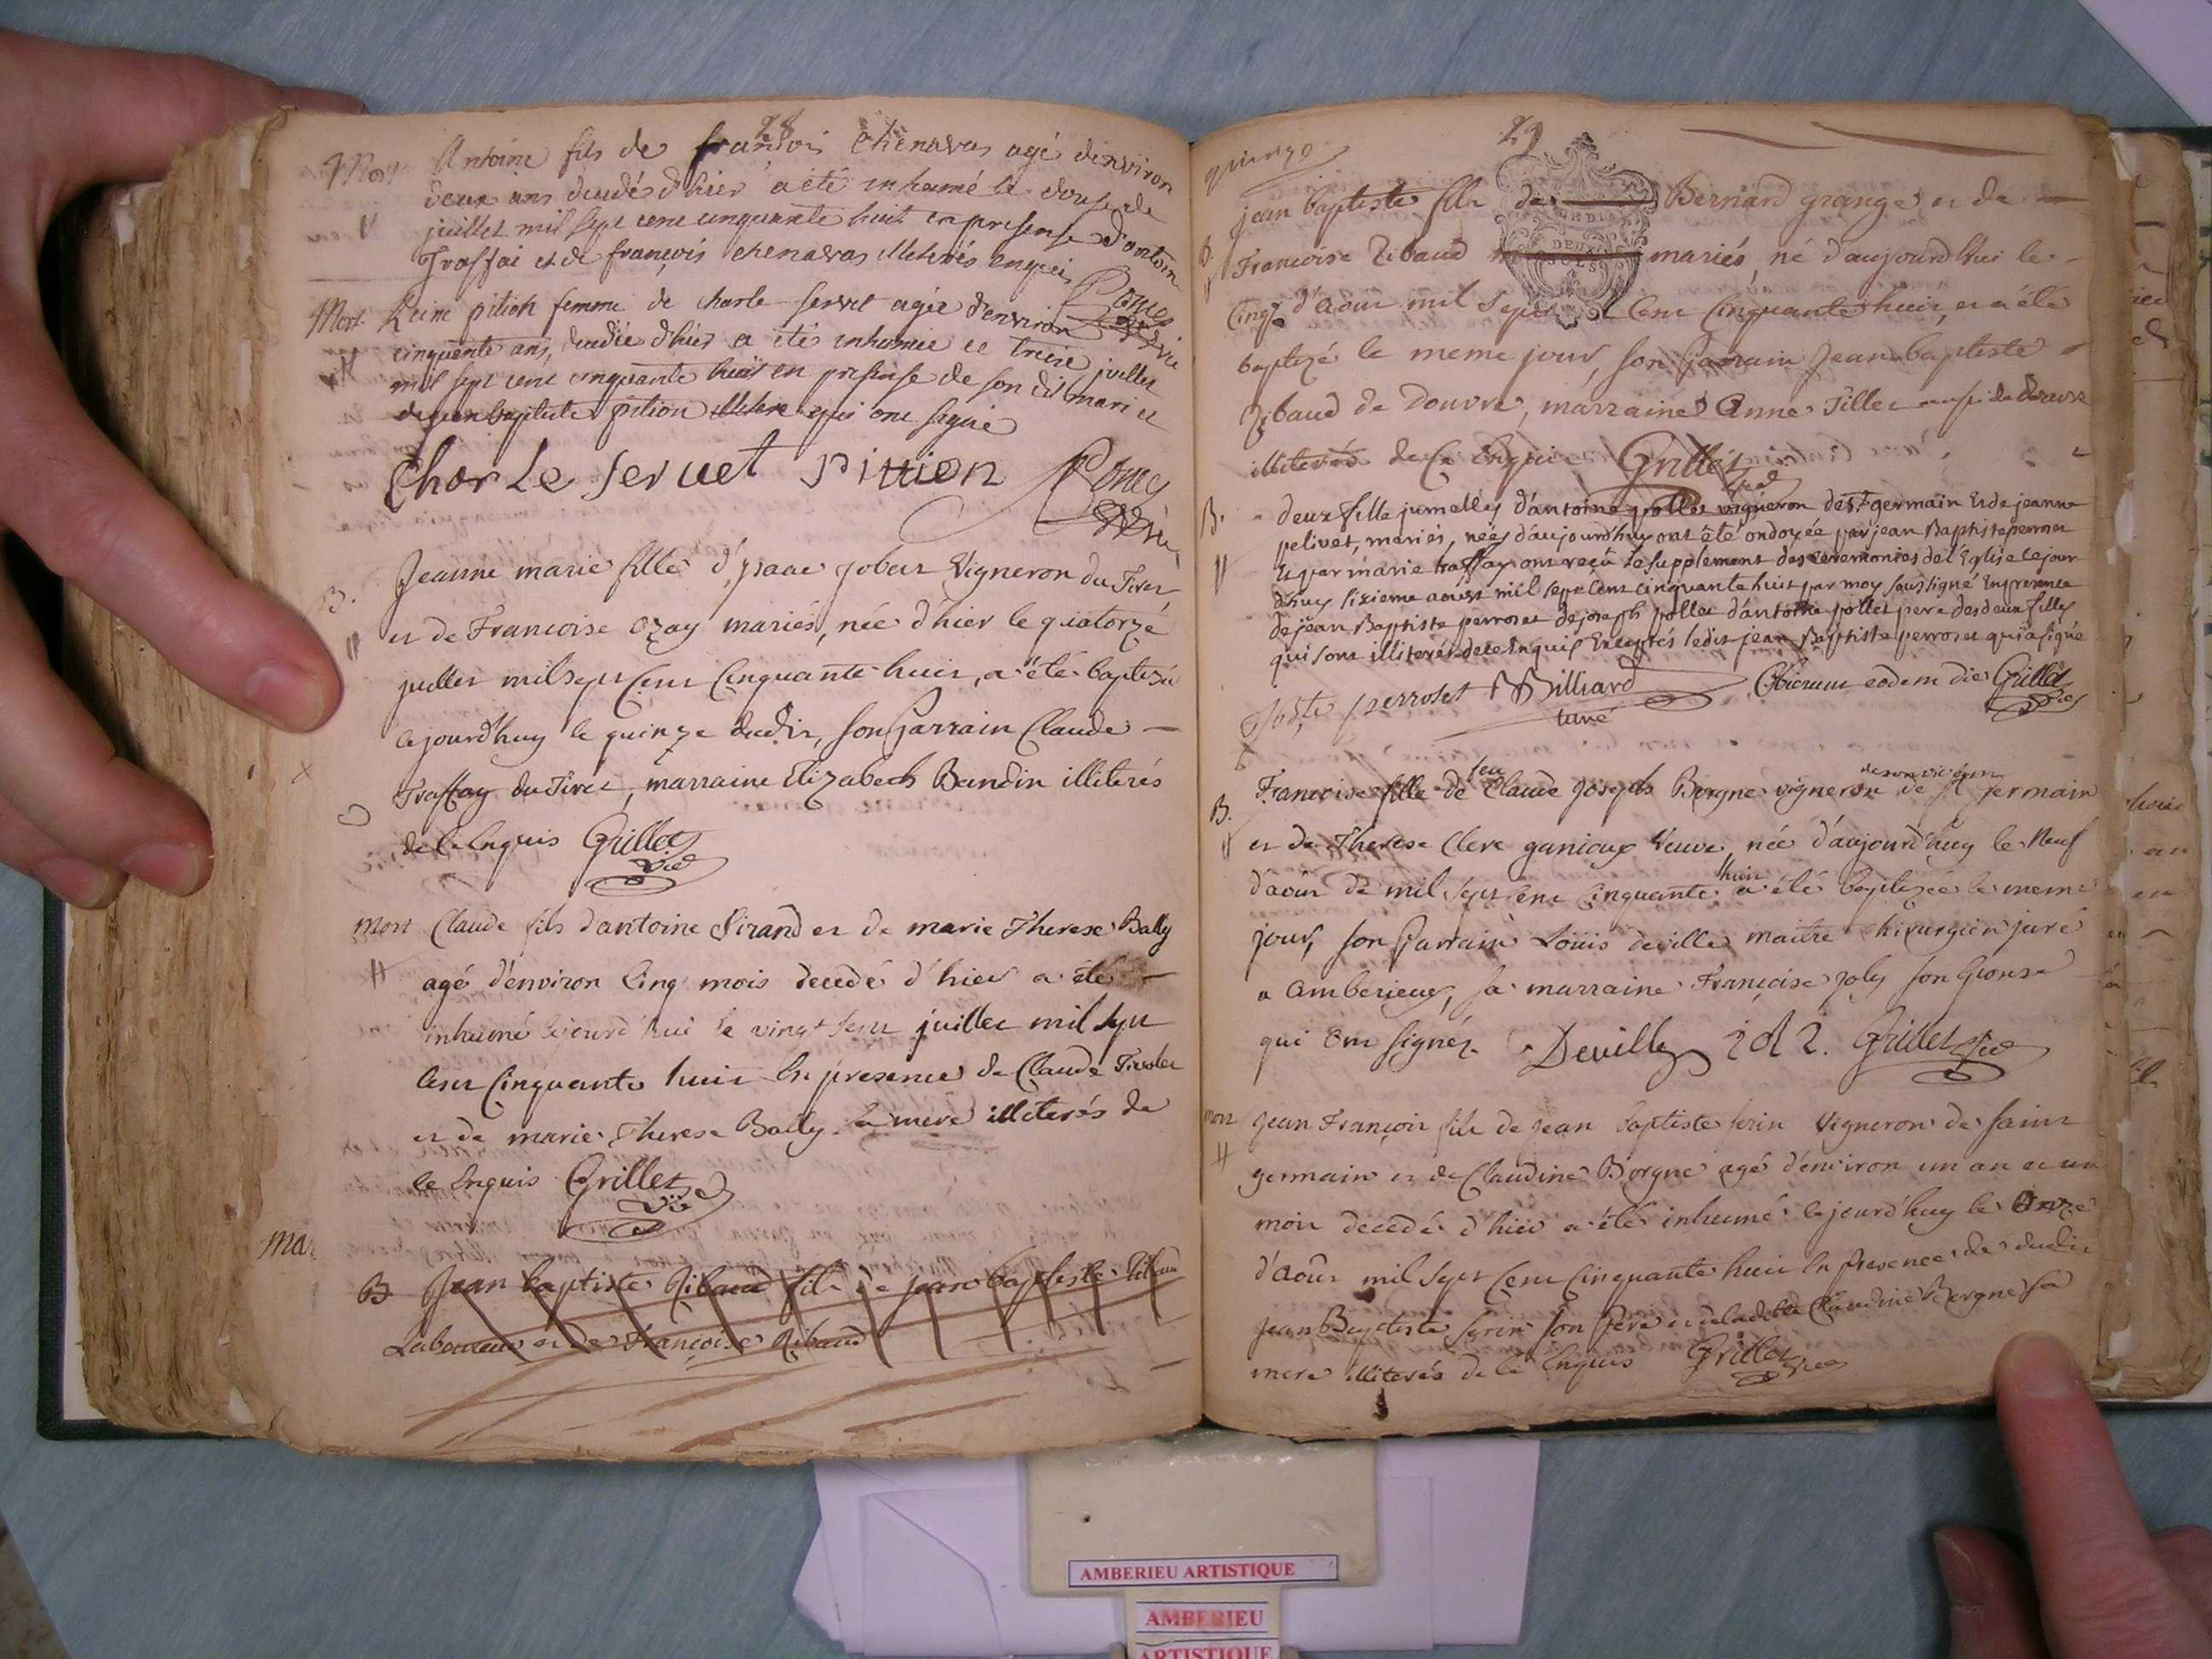 28
Mort Antoine fils de françois Chenavas agé d'environ
deux ans decedé d'hier a été inhumé le douse de
juillet mil sept cent cinquante huit en presense d'antoin
Traffai et de françois chenavas illeterés enquis
Poncet vic
Mort Reine pition femme de charle servet agée d'environ
cinquente ans, decedée d'hier a été inhumée ce treise juillet
mil sept cent cinquante huit en presense de son dit mari et
de jean baptiste pition illetere qui ont signé
Charle servet pittion Poncet
vic
B. Jeanne marie fille d'ysaac jobert Vigneron du Tiret
et de Francoise Ozay mariés, née d'hier le quatorze
juillet mil sept Cent Cinquante huit, a été baptisée
cejourd'huy le quinze dudit, son Parrain Claude
Traffay du Tiret, marraine Elizabeth Baudin illiterés
de ce Enquis Grillet
vic
Mort Claude fils d'antoine Sirand et de marie Therese Bally
agé d'environ Cinq mois decedé d'hier a été
inhumé cejourd'hui le vingt sept juillet mil sept
Cent Cinquante huit En presence de Claude
et de marie Therese Bally sa mere illiterés de
ce Enquis Grillet
vic
Mar
B Jean baptiste Ribaud fils de jean baptiste Ribaud
Laboureur et de Françoise Ribaud
29
jean baptiste fils de Bernard grange et de
B. Francoise Ribaud mariés, né d'aujourdhui le
Cinq d'aout mil Sept Cent Cinquante huit, et a été
baptizé le meme jour, son Parrain Jean baptiste
Ribaud de Douvre, marraine Anne Tillet aussi de Douvre
illiterés de Ce Enquis Grillet
vic
B. deux fille jumelles d'antoine pollet vigneron de St germain Et de jeanne
pelivet, mariés, nées d'aujourd'huy ont été ondoyée par jean Baptiste perroset
Et par marie traffay ont reçu Le supplement des ceremonies de l'Eglise cejour
d'huy sixieme aoust mil sept Cent cinquante huit par moy soussigné En presence
de jean Baptiste perroset de joseph pollet d'antoine pollet pere des deux filles
qui sont illiterés de ce Enquis Exceptés ledit jean Baptiste perroset qui a signé
perroset Billiard
curé
Obierunt eodem die Grillet
vic
B. Francoise fille de feu Claude Joseph Borgne vigneron de son vivant de St germain
et de Therese Clere ganioux Veuve, née d'aujourd'huy le Neuf
d'aout de mil Sept Cent Cinquante huit a été baptizée le meme
jour, son Parrain Loüis deville maitre chirurgien juré
a Amberieux, sa marraine Françoise joly son Epouse
qui ont signéz. Deville Grillet vic
mort Jean François fils de Jean baptiste serin Vigneron de saint
germain et de Claudine Borgne agé d'environ un an et un
mois decedé d'hier a été inhumé cejourd'huy le Onze
d'aoust mil Sept Cent Cinquante huit En presence de dudit
Jean Baptiste serin son Pere et de ladite Claudine Borgne sa
mere illiterés de ce Enquis Grillet vic
AMBERIEU ARTISTIQUE
AMBERIEU
ARTISTIQUE